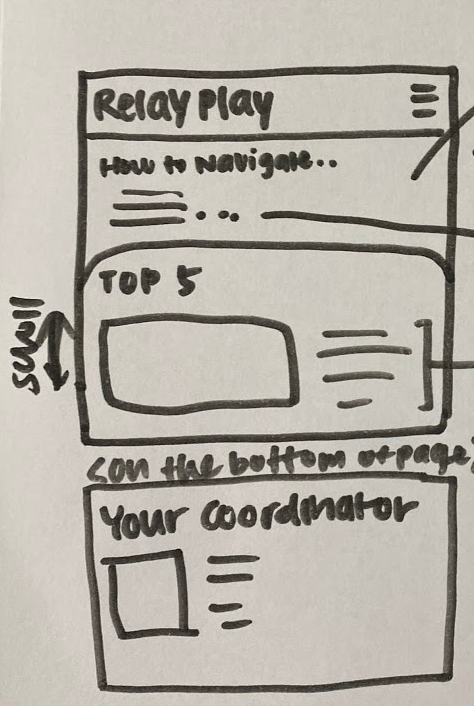 Relay Play
How to Navigate..
TOP 5
scroll
(on the bottom of page)
Your Coordinator